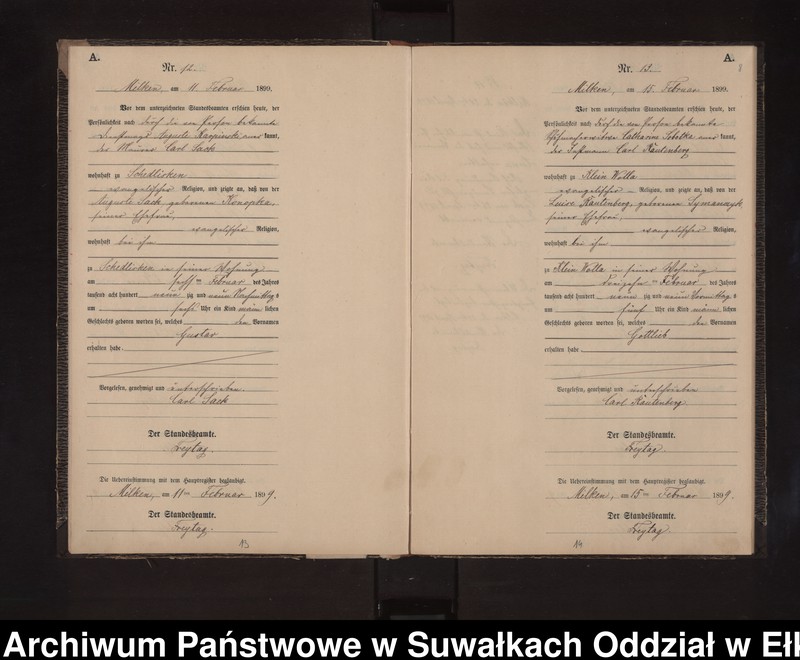 A.
Nr. 12.
Milken, am 11. Februar 1899.
Vor dem unterzeichneten Standesbeamten erschien heute, der
Persönlichkeit nach durch die von Person bekannte
Auguste kannt,
der Maurer Carl Sack
wohnhaft zu Schedlisken
evangelischer Religion, und zeigte an, daß von der
Auguste Sack geborenen Konopka,
seiner Ehefrau,
evangelischer Religion,
wohnhaft bei ihm
zu Schedlisken in seiner Wohnung
am ten Februar des Jahres
tausend acht hundert neun zig und neun Nachmittags
um sechs Uhr ein Kind männlichen
Geschlechts geboren worden sei, welches den Vornamen
Gustav
erhalten habe.
Vorgelesen, genehmigt und unterschrieben
Carl Sack
Der Standesbeamte.
Freytag.
Die Uebereinstimmung mit dem Hauptregister beglaubigt.
Milken, am 11ten Februar 1899.
Der Standesbeamte.
Freytag.
13
A.
8
Nr. 13.
Milken, am 15. Februar 1899.
Vor dem unterzeichneten Standesbeamten erschien heute, der
Persönlichkeit nach durch die von Person bekannte
Catharine kannt,
der Carl Rautenberg
wohnhaft zu Klein Wolla
evangelischer Religion, und zeigte an, daß von der
Luise Rautenberg, geborenen Symanczyk
seiner Ehefrau,
evangelischer Religion,
wohnhaft bei ihm
zu Klein Wolla in seiner Wohnung
am ten Februar des Jahres
tausend acht hundert neun zig und neun Vormittags
um fünf Uhr ein Kind männlichen
Geschlechts geboren worden sei, welches den Vornamen
Gottlieb
erhalten habe.
Vorgelesen, genehmigt und unterschrieben
Carl Rautenberg
Der Standesbeamte.
Freytag.
Die Uebereinstimmung mit dem Hauptregister beglaubigt.
Milken, am 15ten Februar 1899.
Der Standesbeamte.
Freytag.
14
Archiwum Państwowe w Suwałkach Oddział w Eł